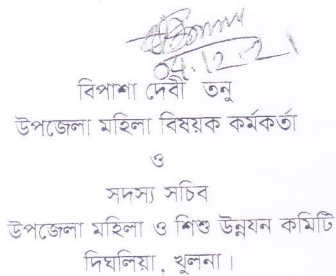 ০৭.১২.২১
বিপাশা দেবী তনু
উপজেলা মহিলা বিষয়ক কর্মকর্তা
ও
সদস্য সচিব
উপজেলা মহিলা ও শিশু উন্নয়ন কমিটি
দিঘলিয়া, খুলনা।